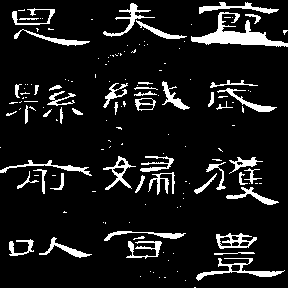 節歲獲豐
夫織婦百
恩縣前以